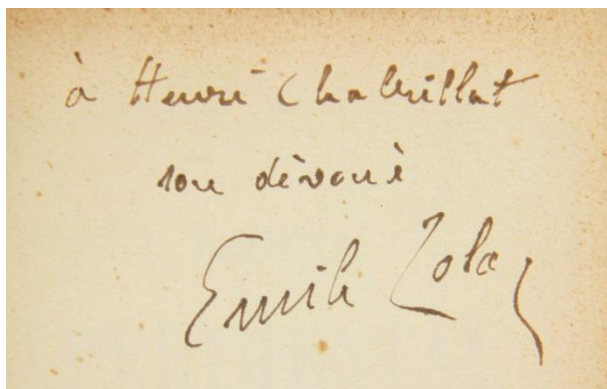 à Henri Chabrillat
son dévoué
Emile Zola